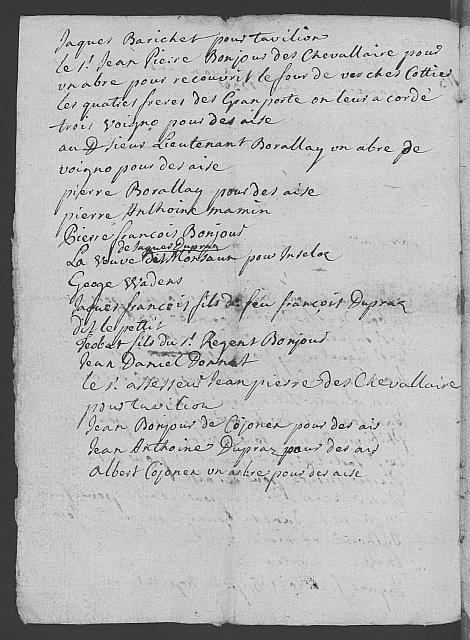 Jaques Barichet pour tavilion
le sr. Jean Pierre Bonjour des Chevallaire pour
un abre pour recouvrit le four de vers ches Cottier
les quatres freres des Granporte on leur a cordé
trois Voigno pour des aise
au Sieur Lieutenant Borallay un abre de
voigno pour des aise
pierre Borallay pour des aise
pierre Anthoine mamin
Pierre françois Bonjour
de Jaques Dupraz
La veuve pour
George Wadens
Jaques françois fils de feu françoit Dupraz
dit le pettit
fils du sr. Regent Bonjour
Jean Daniel Donnat
le sr. assesseur Jean pierre des Chevallaire
pour tavilion
Jean Bonjour de Cojonex pour des ais
Jean Anthoine Dupraz pour des ais
Albert Cojonex un abre pour des aise